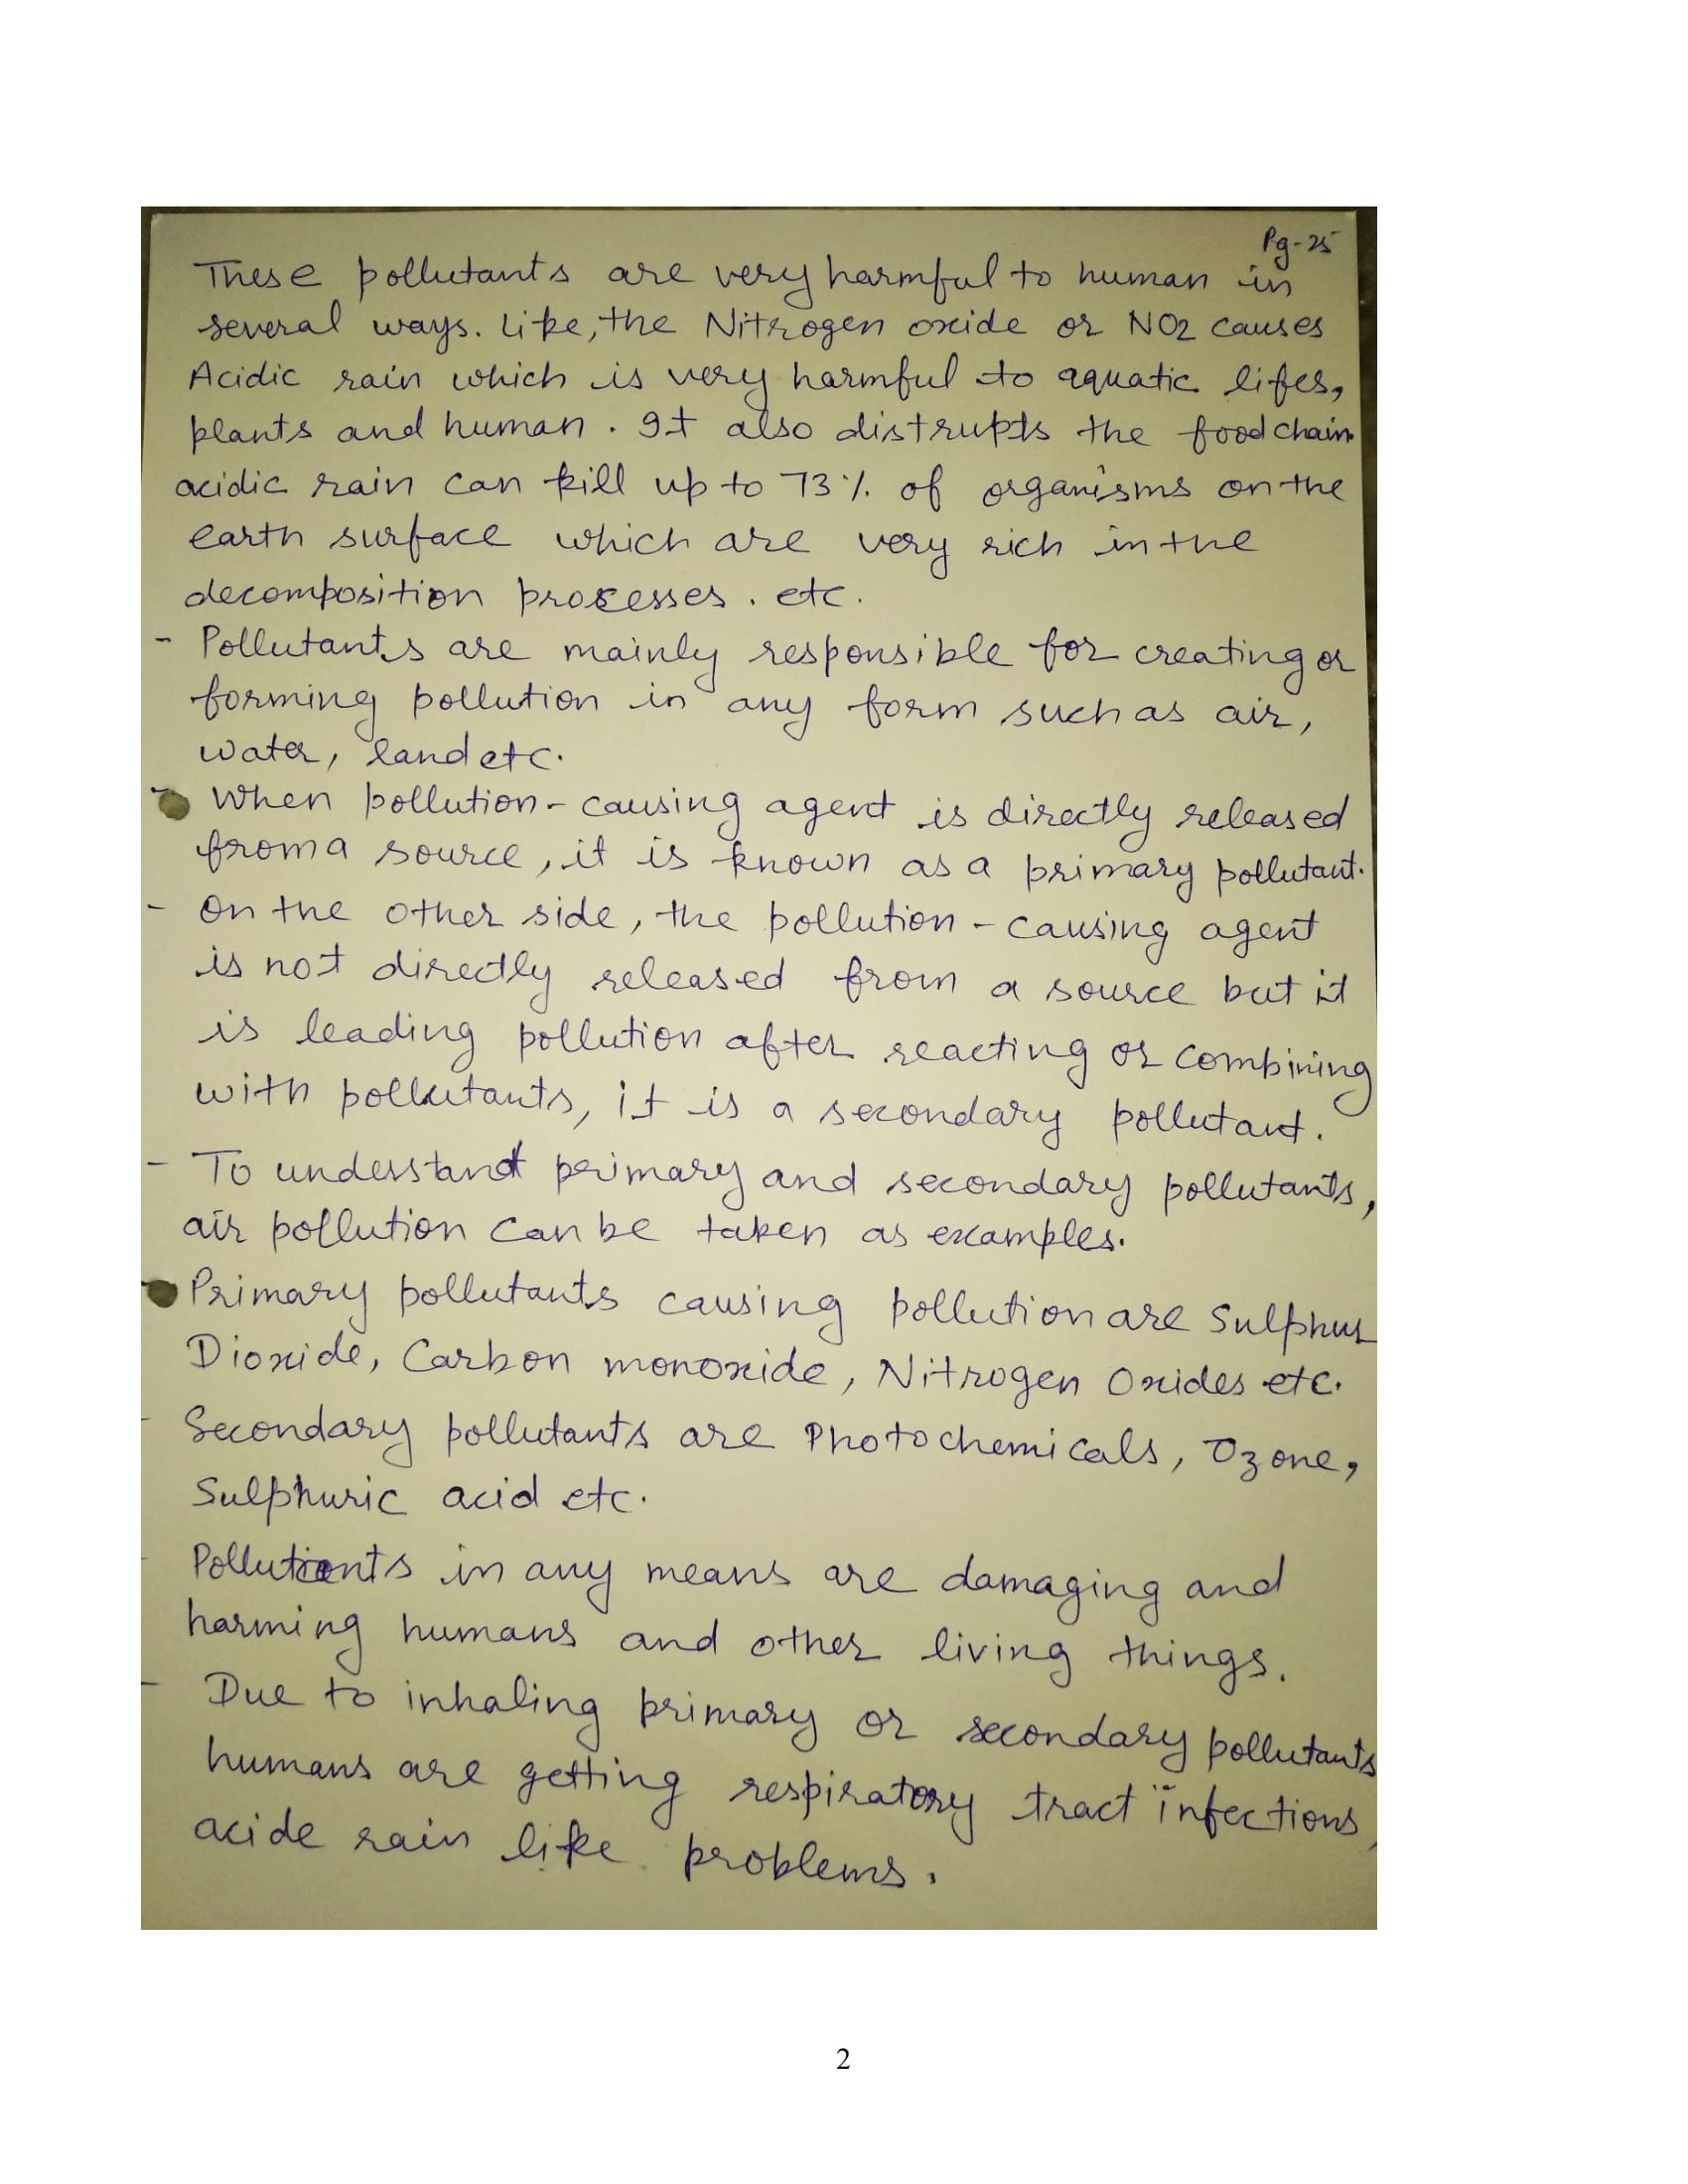 Pg-25
These pollutants are very harmful to human in
several ways. Like, the Nitrogen oxide or NO2 causes
Acidic rain which is very harmful to aquatic lifes,
plants and human. It also distrupts the food chain.
acidic rain can kill up to 73% of organisms on the
earth surface which are very rich in the
decomposition processes. etc.
- Pollutants are mainly responsible for creating or
forming pollution in any form such as air,
water, land etc.
- When pollution-causing agent is directly released
from a source, it is known as a primary pollutant.
- On the other side, the pollution-causing agent
is not directly released from a source but it
is leading pollution after reacting or combining
with pollutants, it is a secondary pollutant.
- To understand primary and secondary pollutants,
air pollution can be taken as examples.
- Primary pollutants causing pollution are Sulphur
Dioxide, Carbon monoxide, Nitrogen Oxides etc.
- Secondary pollutants are Photochemicals, Ozone,
Sulphuric acid etc.
- Pollutants in any means are damaging and
harming humans and other living things.
- Due to inhaling primary or secondary pollutants
humans are getting respiratory tract infections,
acide rain like problems.
2